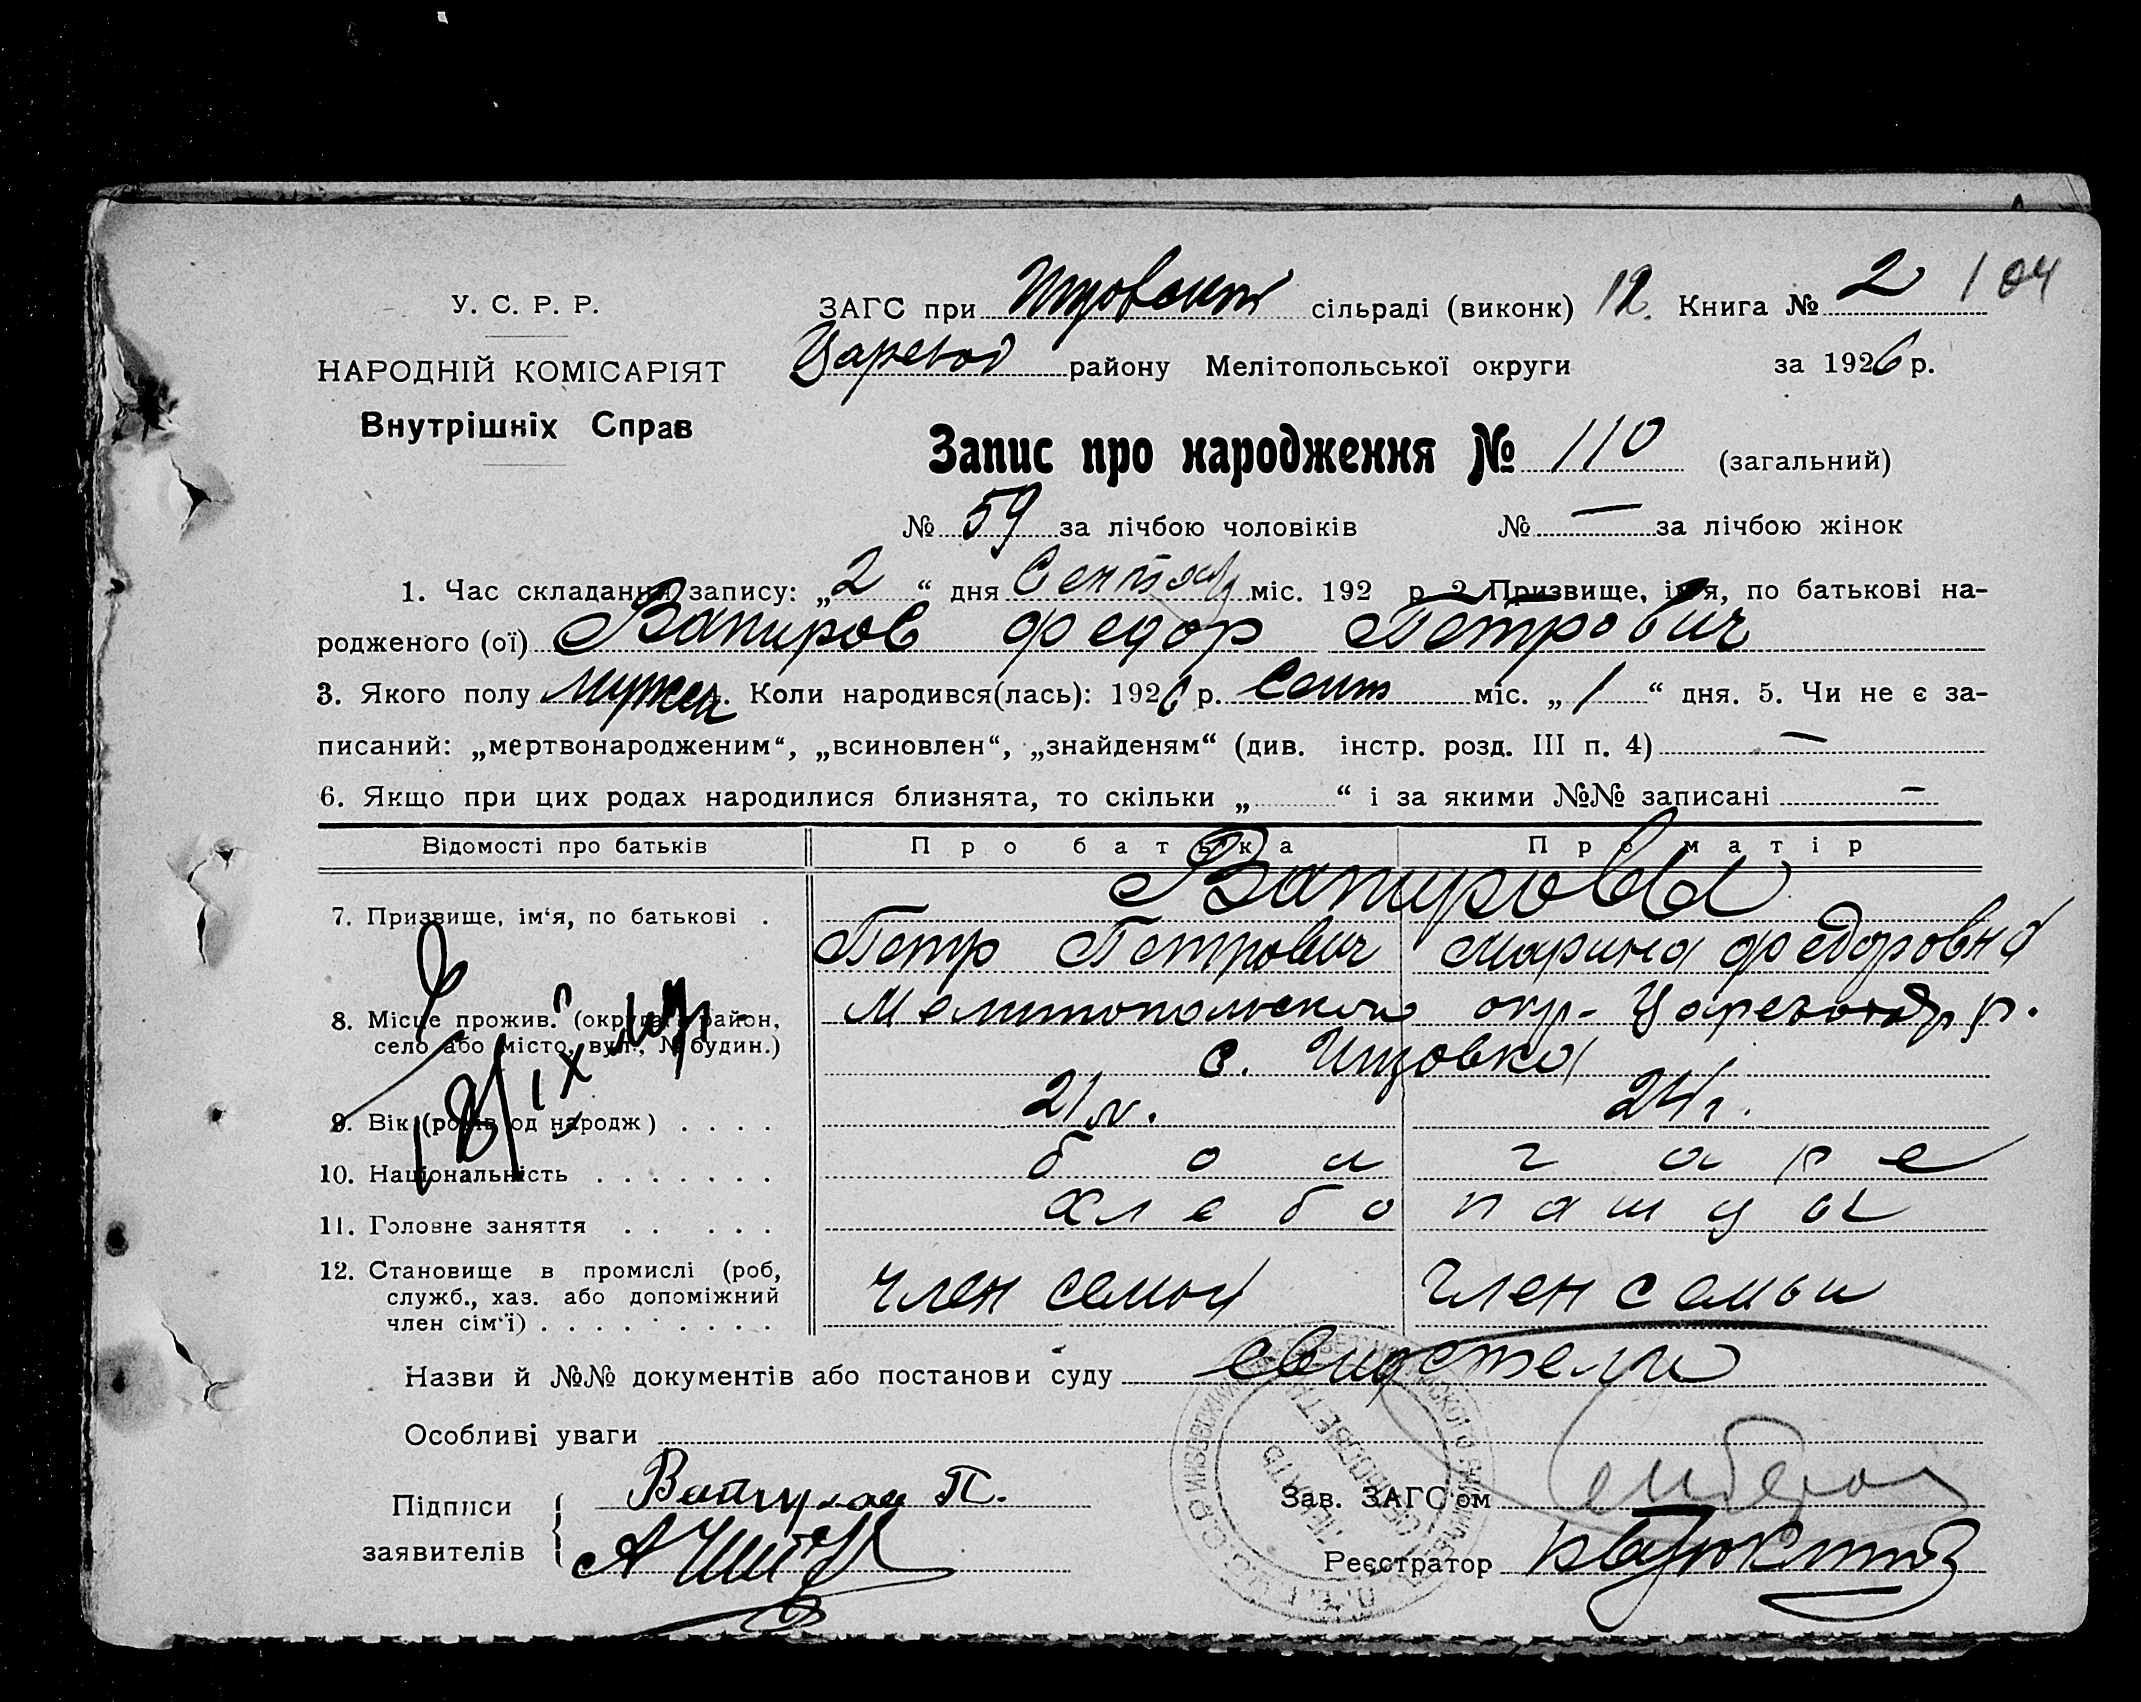 У. С. Р. Р.
НАРОДНІЙ КОМІСАРІЯТ
Внутрішніх Справ
ЗАГС при сільраді (виконк) 12. Книга № 2 104
Царевод району Мелітопольської округи за 1926 р.
Запис про народження № 110 (загальний)
№ 59 за лічбою чоловіків № — за лічбою жінок
1. Час складання запису: „2“ дня міс. 192 р. 2. Призвище, ім'я, по батькові на-
родженого (ої) Вапиров Федор Петрович
3. Якого полу мужск 4. Коли народився(лась): 1926 р. Сент міс. „1“ дня. 5. Чи не є за-
писаний: „мертвонародженим“, „всиновлен“, „знайденям“ (див. інстр. розд. III п. 4) —
6. Якщо при цих родах народилися близнята, то скільки „ “ і за якими №№ записані —
Відомості про батьків Про батька Про матір
Вапировы
7. Призвище, ім‘я, по батькові .
Петр Петрович Марина Федоровна
8. Місце прожив. (округа, район, село або місто, вул., № будин.)
Мелитопольской окр. р.
с.
9. Вік (років од народж) . . . . 21 л. 24 г.
10. Національність . . . . . . . болгаре
11. Головне заняття . . . . . хлебопашцы
12. Становище в промислі (роб,
служб., хаз. або допоміжний
член сім‘ї) . . . . . . . . . член семьи член семьи
Назви й №№ документів або постанови суду свидетели
Особливі уваги
Підписи
заявителів
П.
Зав. ЗАГС'ом
Реєстратор